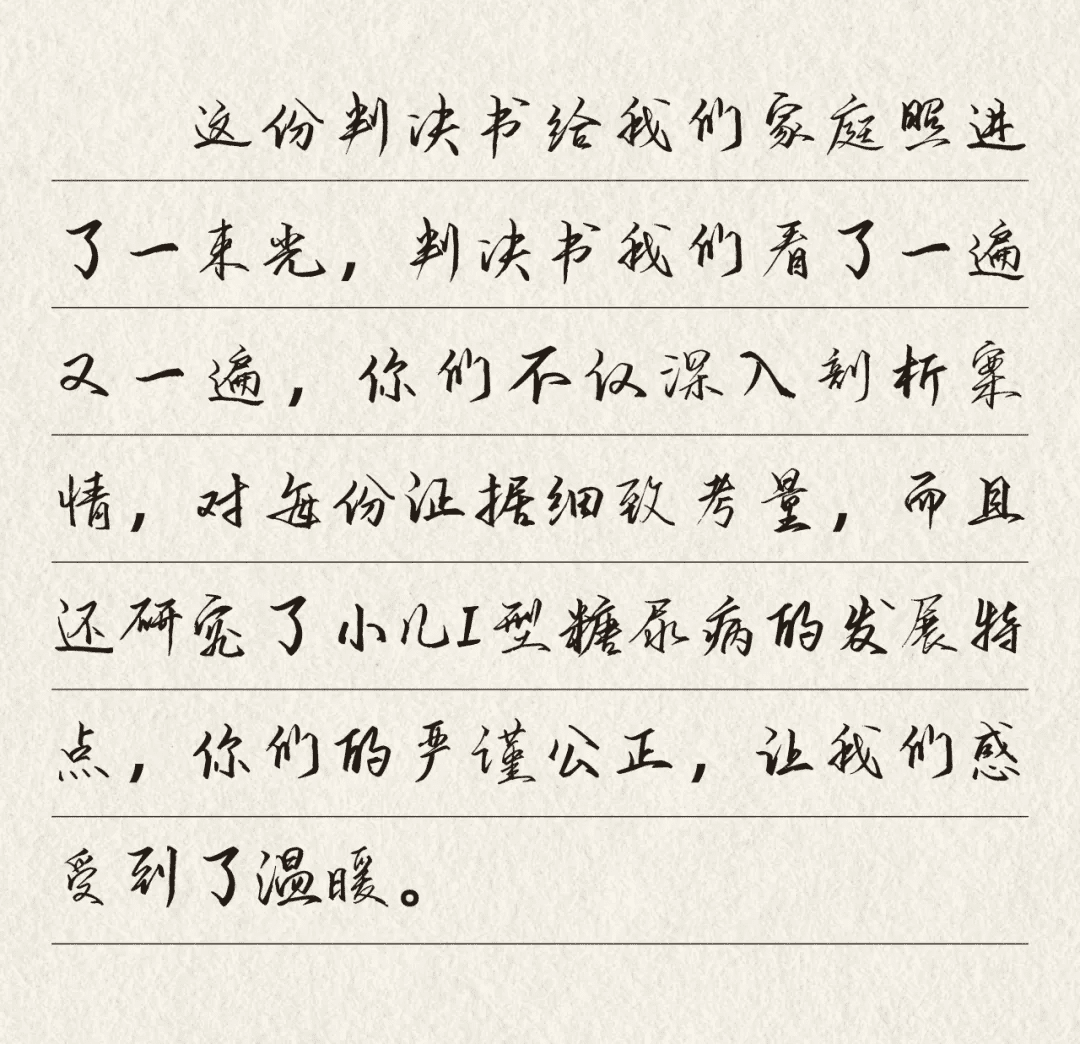 这份判决书给我们家庭照进
了一束光，判决书我们看了一遍
又一遍，你们不仅深入剖析案
情，对每份证据细致考量，而且
还研究了小儿I型糖尿病的发展特
点，你们的严谨公正，让我们感
受到了温暖。